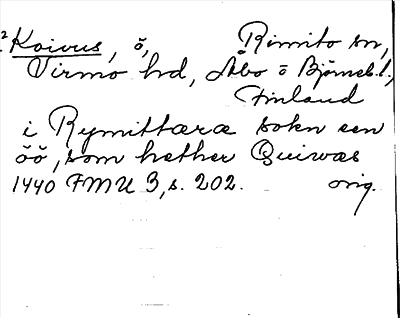 2 Koivus, ö, Rimito sn,
Virmo hd, Åbo ō Björneb. l.,
Finland
i Rymittæræ sokn een
öö, som hether Quiwas
1440 FMU 3, s. 202. orig.